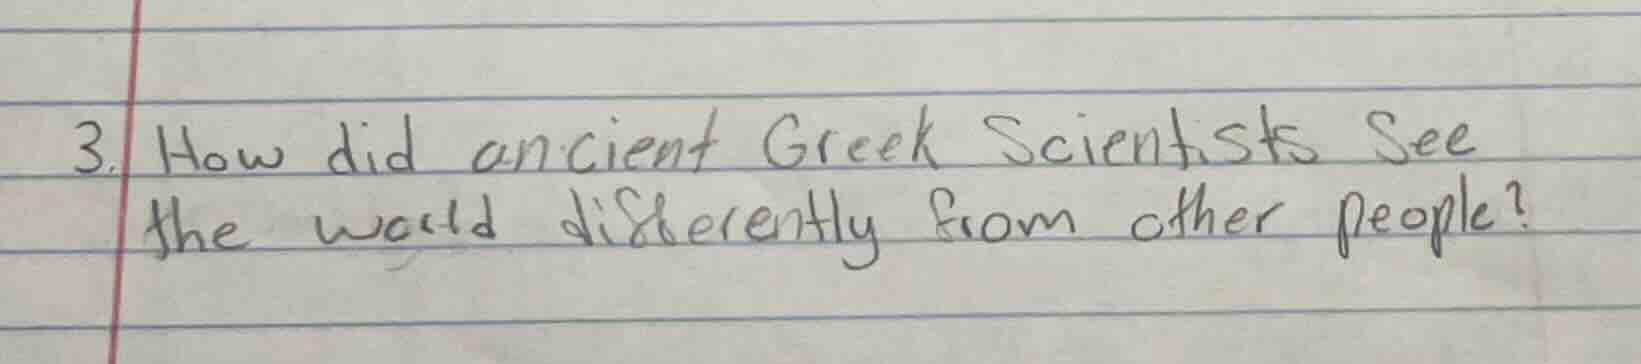 3. How did ancient Greek Scientists See
the world differently from other people?